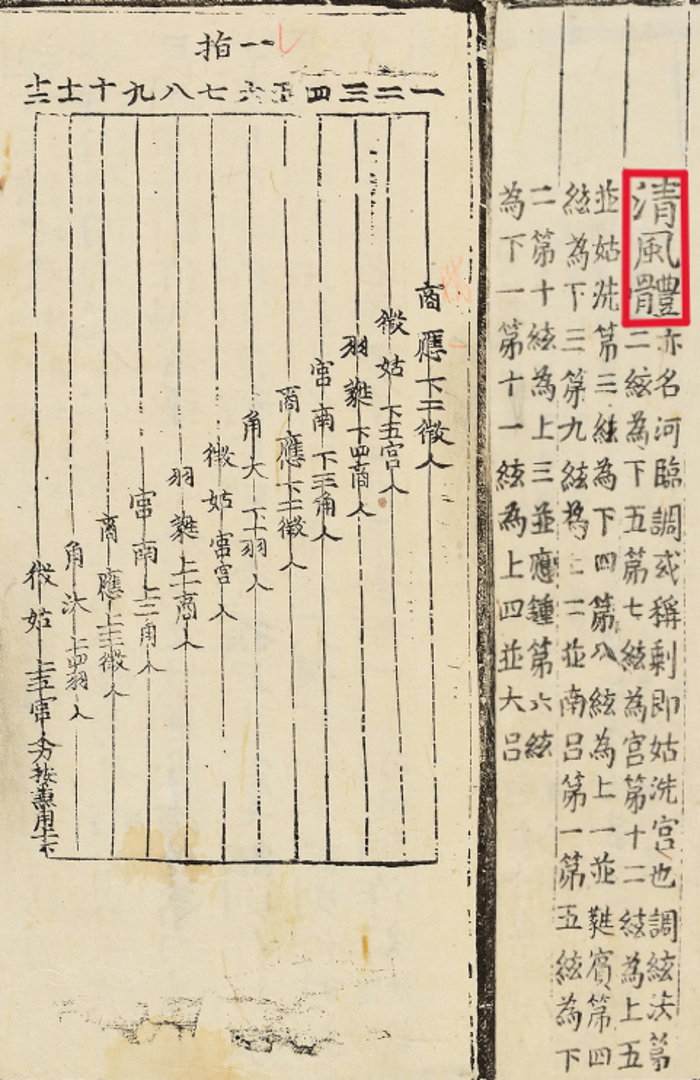 清風體
亦名河臨調或稱剩即姑洗宮也調絃法第
二絃為下五第七絃為宮第十二絃為上五
並姑洗第三絃為下四第八絃為上一並蕤賓第四
絃為下三第九絃為上二並南呂第一第五絃為下
二第十絃為上三並應鍾第六絃
為下一第十一絃為上四並大呂
一指
一二三四五六七八九十十一十二
商應下二徵人
徵姑下五宮人
羽蕤下四商人
宮南下三角人
商應下二徵人
角大下一羽人
徵姑宮宮人
羽蕤上一商人
宮南上二角人
商應上三徵人
角汏上四羽人
徵姑上五宮